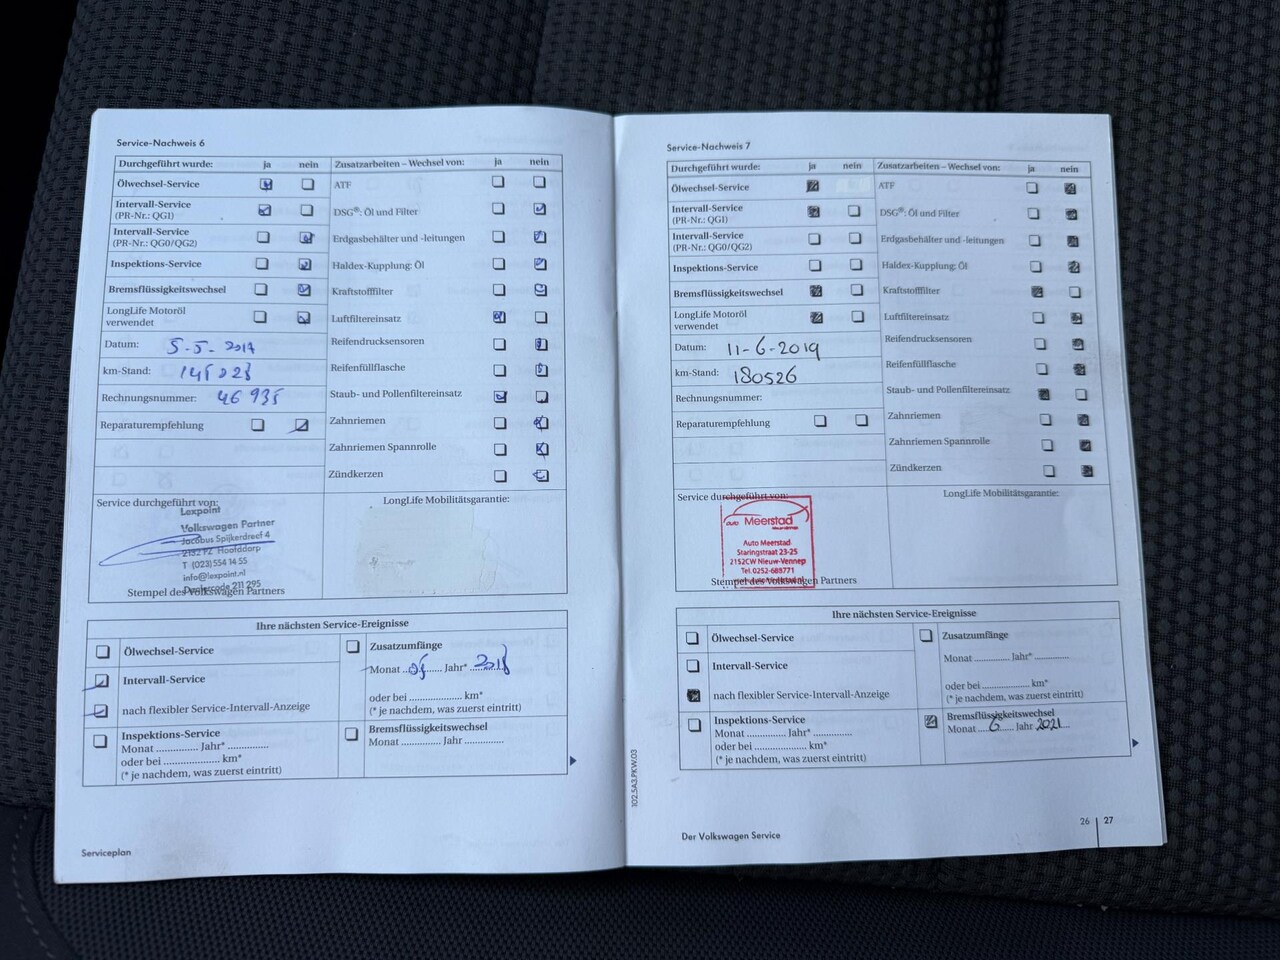 Service-Nachweis 6
Durchgeführt wurde: ja nein
Zusatzarbeiten – Wechsel von: ja nein
Ölwechsel-Service
ATF
Intervall-Service
(PR-Nr.: QG1)
DSG®: Öl und Filter
Intervall-Service
(PR-Nr.: QG0/QG2)
Erdgasbehälter und -leitungen
Inspektions-Service
Haldex-Kupplung: Öl
Bremsflüssigkeitswechsel
Kraftstofffilter
LongLife Motoröl
verwendet
Luftfiltereinsatz
Datum: 5-5-2017
Reifendrucksensoren
km-Stand:
Reifenfüllflasche
Rechnungsnummer: 46935
Staub- und Pollenfiltereinsatz
Reparaturempfehlung
Zahnriemen
Zahnriemen Spannrolle
Zündkerzen
Service durchgeführt von:
LongLife Mobilitätsgarantie:
Lexpoint
Volkswagen Partner
Jacobus Spijkerdreef 4
2132 PZ Hoofddorp
T (023) 554 14 55
info@lexpoint.nl
Dealercode 211 295
Stempel des Volkswagen Partners
Ihre nächsten Service-Ereignisse
Ölwechsel-Service
Zusatzumfänge
Monat ............ Jahr* 2018
Intervall-Service
oder bei .................... km*
nach flexibler Service-Intervall-Anzeige
(* je nachdem, was zuerst eintritt)
Inspektions-Service
Monat ............. Jahr* .............
oder bei .................... km*
(* je nachdem, was zuerst eintritt)
Bremsflüssigkeitswechsel
Monat ............ Jahr .............
Serviceplan
Service-Nachweis 7
Durchgeführt wurde: ja nein
Zusatzarbeiten – Wechsel von: ja nein
Ölwechsel-Service
ATF
Intervall-Service
(PR-Nr.: QG1)
DSG®: Öl und Filter
Intervall-Service
(PR-Nr.: QG0/QG2)
Erdgasbehälter und -leitungen
Inspektions-Service
Haldex-Kupplung: Öl
Bremsflüssigkeitswechsel
Kraftstofffilter
LongLife Motoröl
verwendet
Luftfiltereinsatz
Datum: 11-6-2019
Reifendrucksensoren
km-Stand: 180526
Reifenfüllflasche
Rechnungsnummer:
Staub- und Pollenfiltereinsatz
Reparaturempfehlung
Zahnriemen
Zahnriemen Spannrolle
Zündkerzen
Service durchgeführt von:
LongLife Mobilitätsgarantie:
auto Meerstad
Auto Meerstad
Staringstraat 23-25
2152CW Nieuw-Vennep
Tel. 0252-688771
Stempel des Volkswagen Partners
Ihre nächsten Service-Ereignisse
Ölwechsel-Service
Zusatzumfänge
Monat ............ Jahr* ............
Intervall-Service
oder bei .................... km*
nach flexibler Service-Intervall-Anzeige
(* je nachdem, was zuerst eintritt)
Inspektions-Service
Monat ............. Jahr* .............
oder bei .................... km*
(* je nachdem, was zuerst eintritt)
Bremsflüssigkeitswechsel
Monat 6 Jahr 2021
102.5A3.PKW.03
Der Volkswagen Service
26 | 27